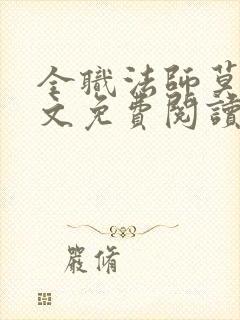 全職法師莫
文免費閱讀
嚴脩